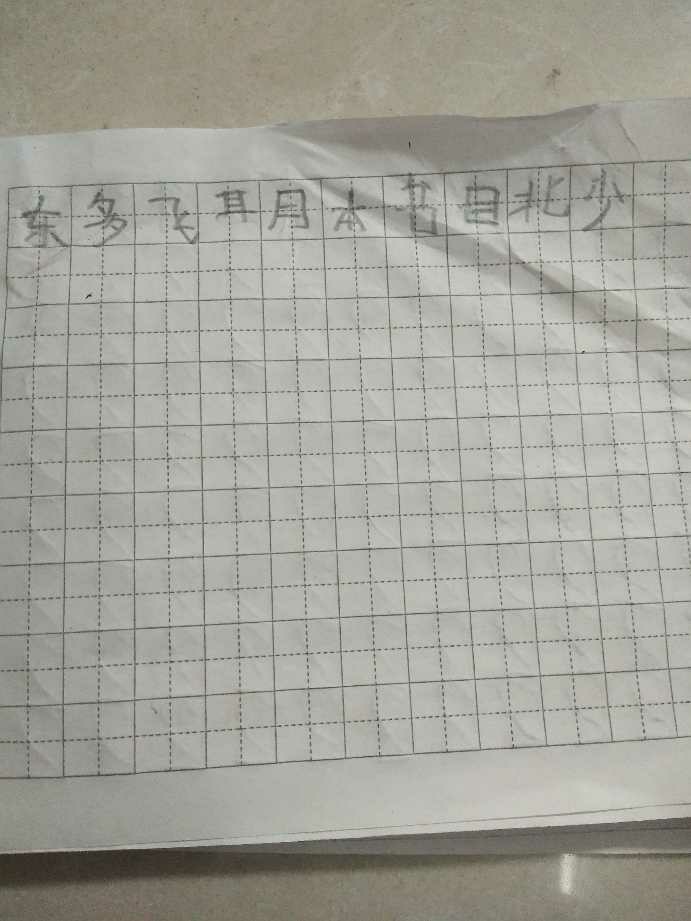 东多飞耳月本书自北少